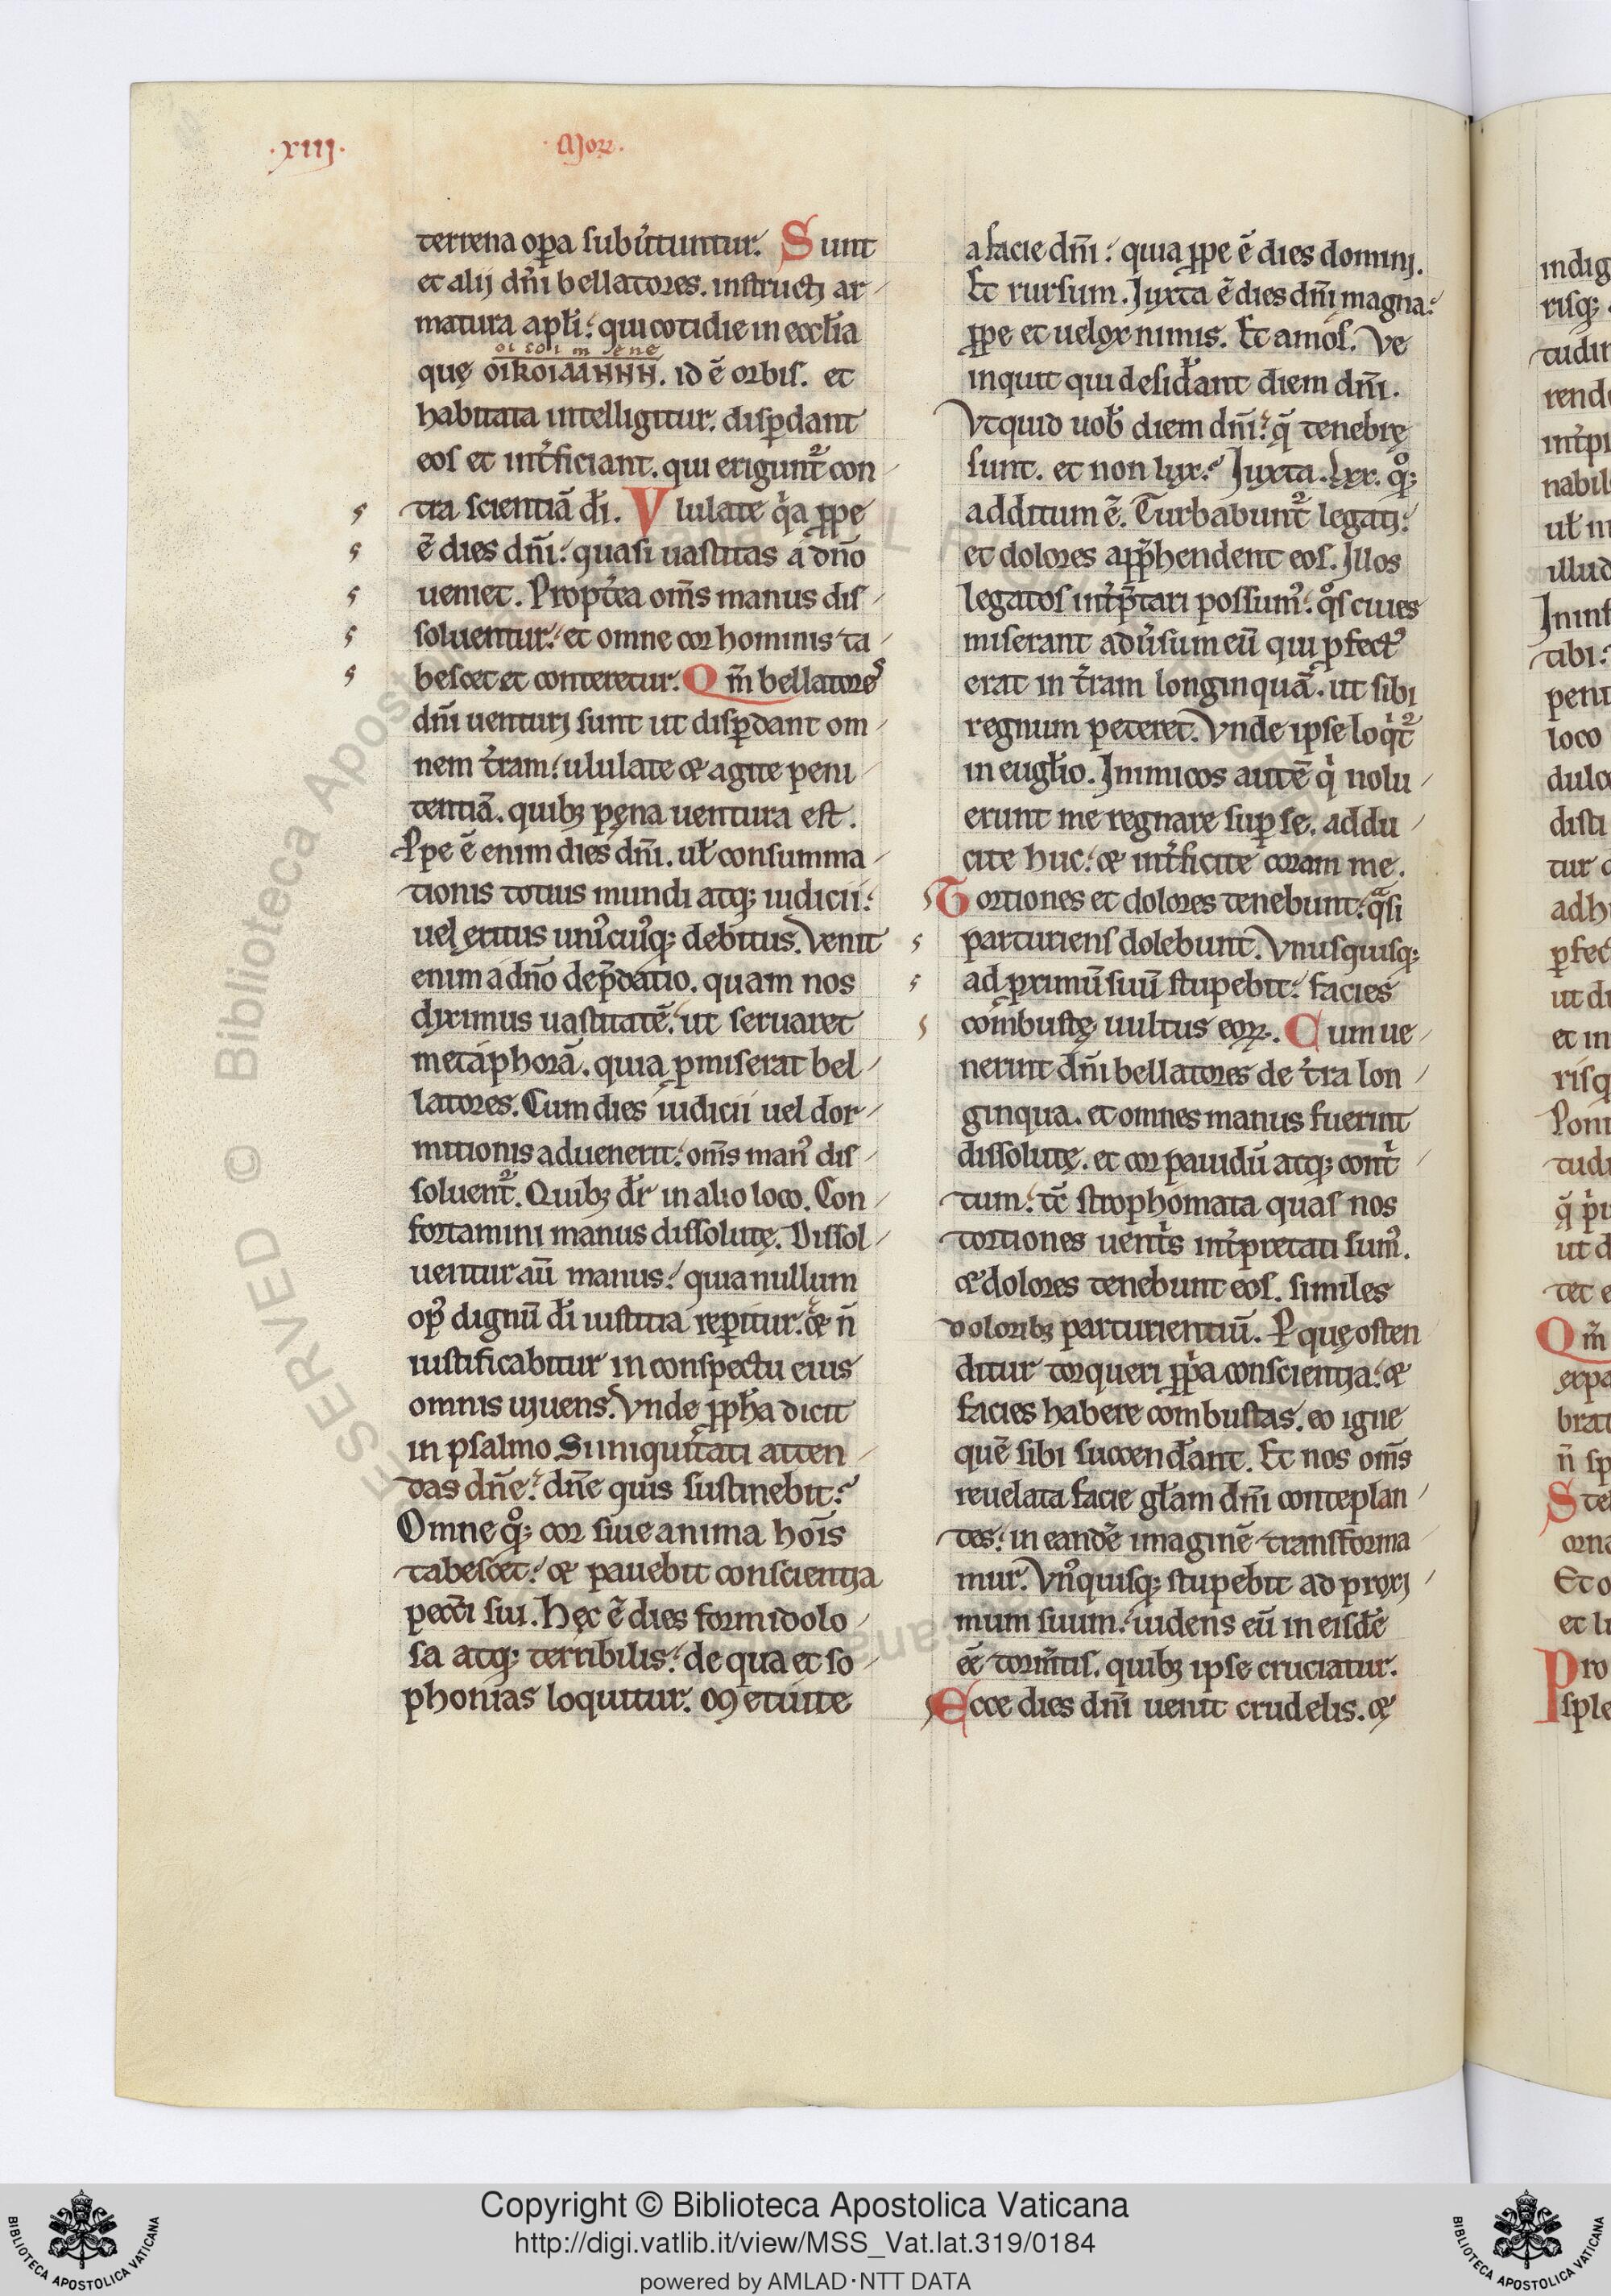 ·xiij·
·Morr·
terrena oꝑa subu̓tuntur. Sunt
et alij dn̄i bellatores. instructi ar-
matura apl̄i: qui cotidie in eccl̄ia
quę οικοιλλΗΗΗ. id ē orbis. et
habitata intelligitur. disꝑdant
eos et int̓ficiant. qui erigunt᷑ con-
tra scientiā dī. Vlulate qͥa ꝓpe
ē dies dn̄i: quasi uastitas a dn̄o
ueniet. Propt̓ea om̄s manus dis-
soluentur: et omne cor hominis ta-
bescet et conteretur. Qm̄ bellatores
dn̄i uenturi sunt ut disꝑdant om-
nem t̓ram: ululate & agite peni-
tentiā. quibꝫ pęna uentura est.
Ꝓpe ē enim dies dn̄i. ul̄ consumma-
tionis totius mundi atqꝫ iudicii:
uel exitus uniꝰcuiꝰqꝫ debitus. Venit
enim a dn̄o dep̄datio. quam nos
diximus uastitatē. ut seruaret
metaphorā. quia p̄miserat bel-
latores. Cum dies iudicii uel dor-
mitionis aduenerit: om̄s manꝰ dis-
soluent᷑. Quibꝫ dr̄ in alio loco. Con-
fortamini manus dissolutę. Dissol-
uentur aū manus: quia nullum
opꝰ dignū dī iustitia reꝑitur. & n̄
iustificabitur in conspectu eius
omnis uiuens. Vnde ꝓph̄a dicit
in psalmo Si iniquitati atten-
das dn̄e: dn̄e quis sustinebit?
Omne qͦꝫ cor siue anima hoīs
tabescet: & pauebit conscientia
pecc̄i sui. Hęc ē dies formidolo-
sa atqꝫ terribilis: de qua et so-
phonias loquitur. Metuite
a facie dn̄i: quia ꝓpe ē dies domini.
Et rursum. Iuxta ē dies dn̄i magna:
ꝓpe et uelox nimis. Et amos. Ve
inquit qui desid̓ant diem dn̄i.
Vtquid uob̄ diem dn̄i: q̄ tenebrę
sunt. et non lux? Iuxta .Lxx. qͦꝫ
additum ē. Turbabunt᷑ legati:
et dolores app̄hendent eos. Illos
legatos int̓p̄tari possumꝰ. qͦs ciues
miserant adu̓sum eū qui ꝓfectꝰ
erat in t̓ram longinquā. ut sibi
regnum peteret. Vnde ipse loqͥt᷑
in eugl̄io. Inimicos autē qͥ nolu-
erunt me regnare suꝑ se. addu-
cite huc: & int̓ficite coram me.
Tortiones et dolores tenebunt: qͣsi
parturiens dolebunt. Vnusquisqꝫ
ad ꝓximū suū stupebit: facies
combustę uultus eoꝝ. Cum ue-
nerint dn̄i bellatores de t̓ra lon-
ginqua. et omnes manus fuerint
dissolutę. et cor pauidū atqꝫ contͥ-
tum: tc̄ strophomata quas nos
tortiones uentͥs int̓pretati sumꝰ.
& dolores tenebunt eos. similes
doloribꝫ parturientiū. Ꝑ quę osten
ditur torqueri ꝓpͥa conscientia: &
facies habere combustas. eo igne
quē sibi succend̓ant. Et nos om̄s
reuelata facie gl̄am dn̄i conteplan-
tes: in eandē imaginē transforma
mur. Vnꝰquisqꝫ stupebit ad proxi-
mum suum: uidens eū in eisdē
eē torm̄tis. quibꝫ ipse cruciatur.
Ecce dies dn̄i uenit crudelis. &
Copyright © Biblioteca Apostolica Vaticana
http://digi.vatlib.it/view/MSS_Vat.lat.319/0184
powered by AMLAD·NTT DATA